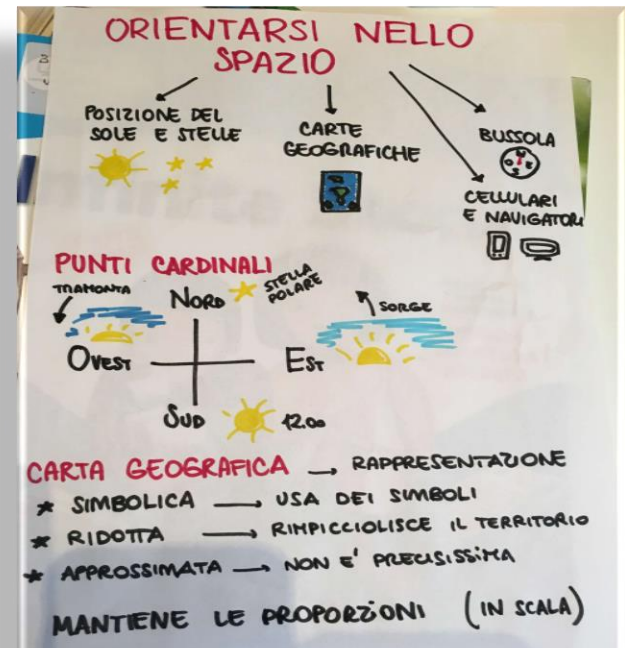 ORIENTARSI NELLO
SPAZIO
POSIZIONE DEL
SOLE E STELLE
CARTE
GEOGRAFICHE
BUSSOLA
CELLULARI
E NAVIGATORI
PUNTI CARDINALI
TRAMONTA
NORD
STELLA
POLARE
SORGE
OVEST
EST
SUD
12.00
CARTA GEOGRAFICA → RAPPRESENTAZIONE
* SIMBOLICA → USA DEI SIMBOLI
* RIDOTTA → RIMPICCIOLISCE IL TERRITORIO
* APPROSSIMATA → NON E' PRECISISSIMA
MANTIENE LE PROPORZIONI (IN SCALA)